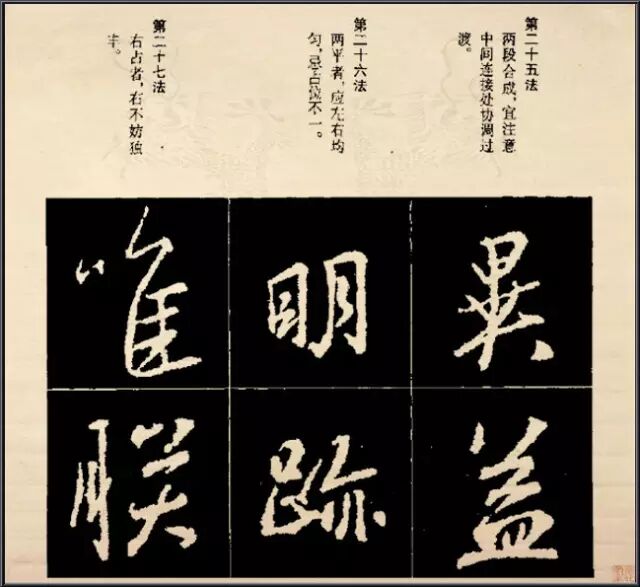 第二十五法
两段合成，宜注意
中间连接处协调过
渡。
第二十六法
两平者，应左右均
匀，忌占位不一。
第二十七法
右占者，右不妨独
丰。
異
益
明
跡
唯
联